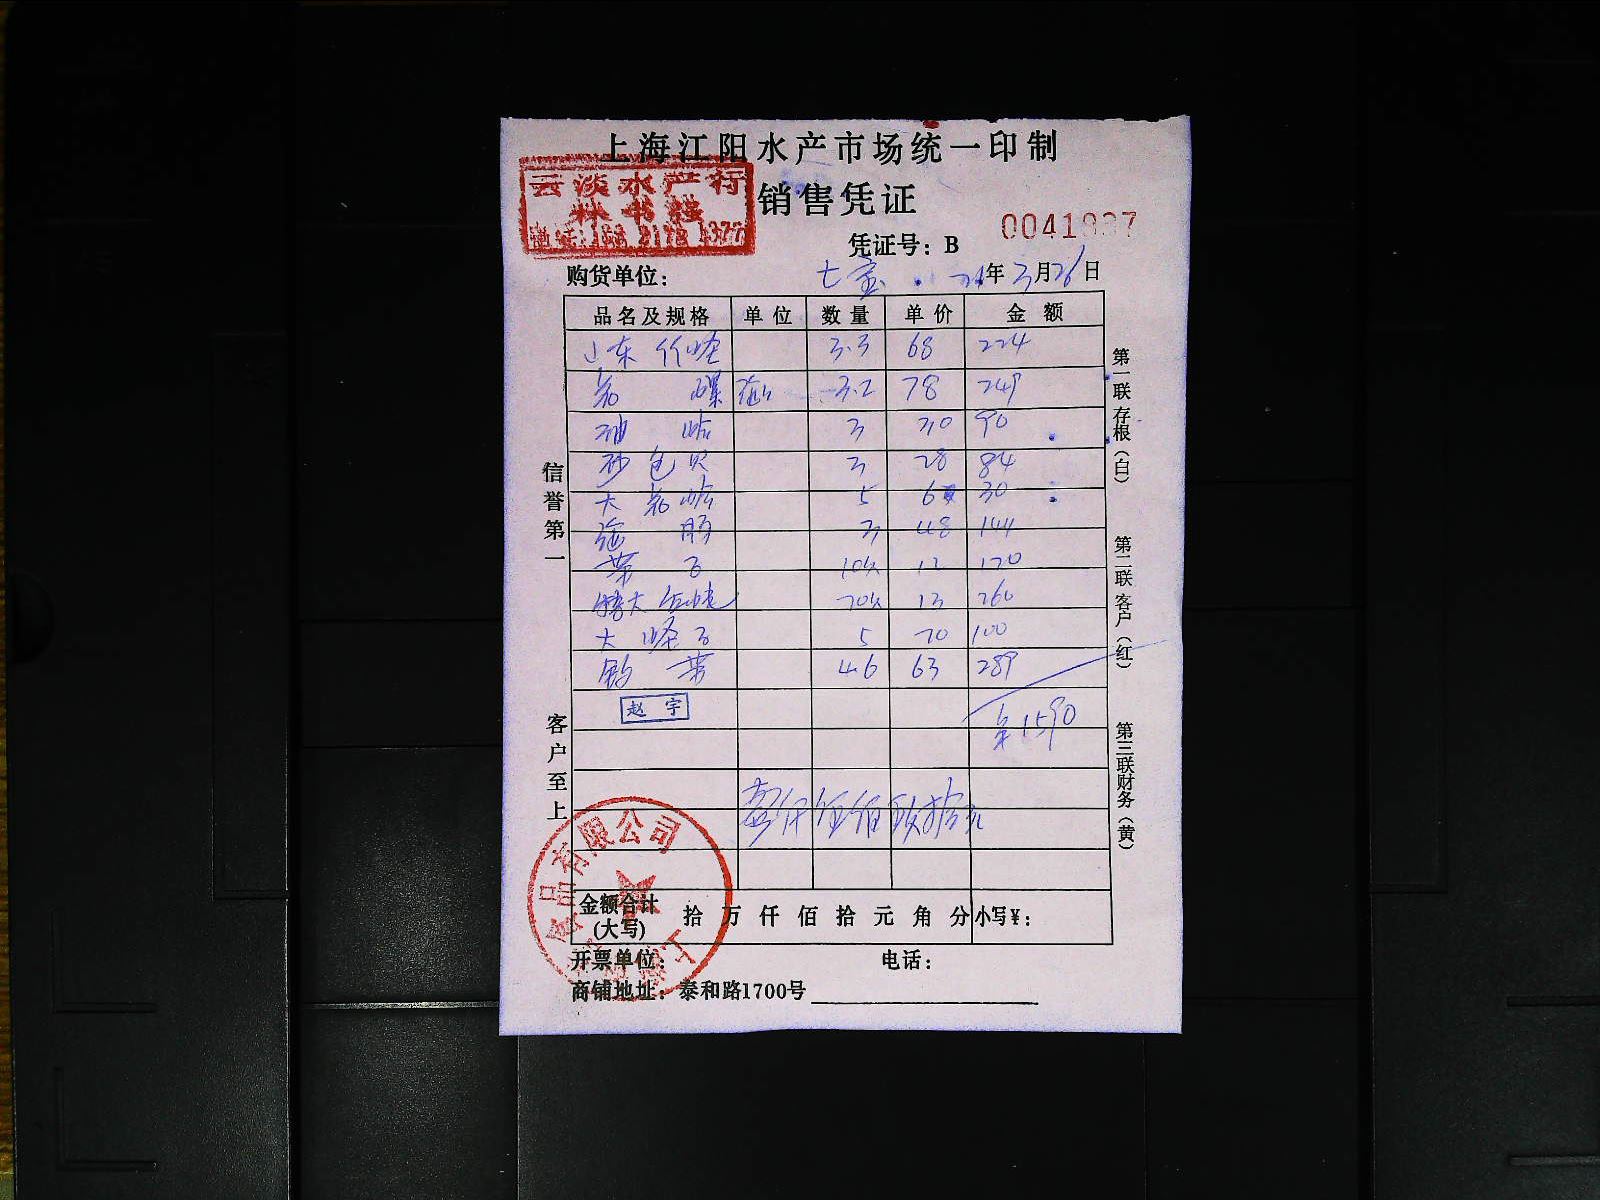 上海江阳水产市场统一印制
云淡水产行
销售凭证
0041937
凭证号：B
购货单位：七宝 21年3月26日
品名及规格 单位 数量 单价 金额
山东竹蛏 3.3 68 224
螺 3.2 78 249
油蛤 3 30 90
沙包贝 3 28 84
大花蛤 5 6 30
3 48 144
10 12 120
特大 20 13 260
大蛏子 5 20 100
鲍 4.6 63 289
赵宇
1590
壹仟伍佰玖拾元
信誉第一
客户至上
第一联存根（白）
第二联客户（红）
第三联财务（黄）
品有限公司
金额合计(大写) 拾 万 仟 佰 拾 元 角 分 小写¥：
开票单位： 电话：
商铺地址：泰和路1700号